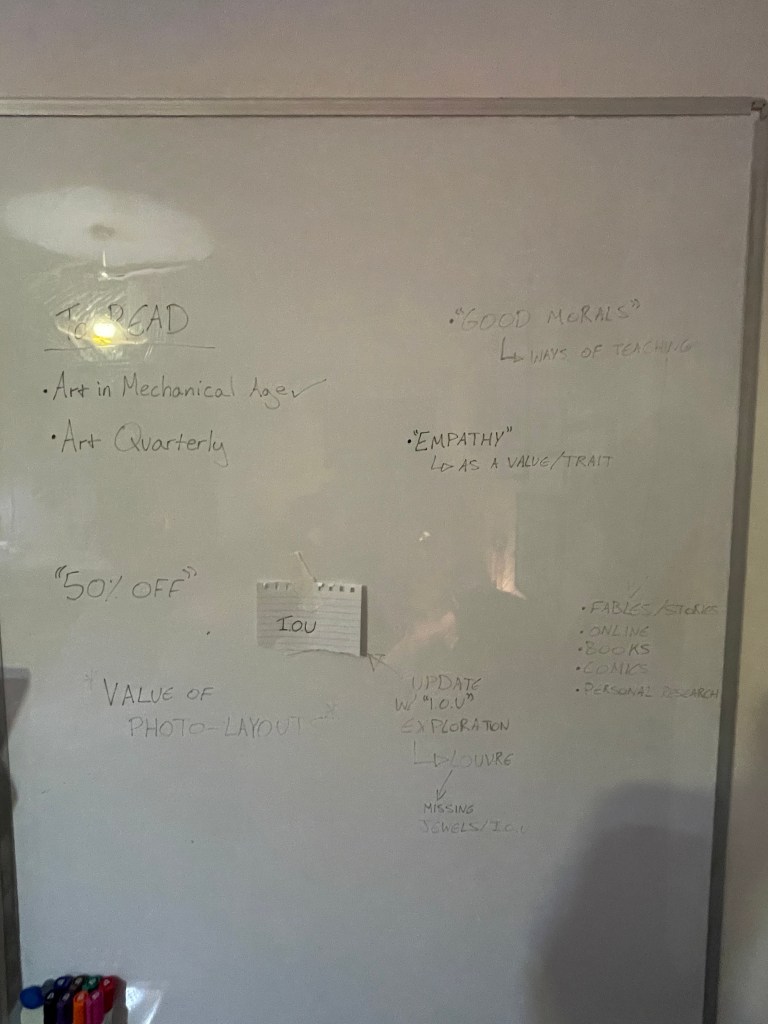 To READ
• Art in Mechanical Age ✓
• Art Quarterly
• "GOOD MORALS"
↳ WAYS OF TEACHING
• "EMPATHY"
↳ AS A VALUE/TRAIT
"50% OFF"
I.O.U
"VALUE OF
PHOTO-LAYOUTS"
UPDATE
W/ "I.O.U"
EXPLORATION
↳ LOUVRE
MISSING
JEWELS/I.O.U
• FABLES/STORIES
• ONLINE
• BOOKS
• COMICS
• PERSONAL RESEARCH